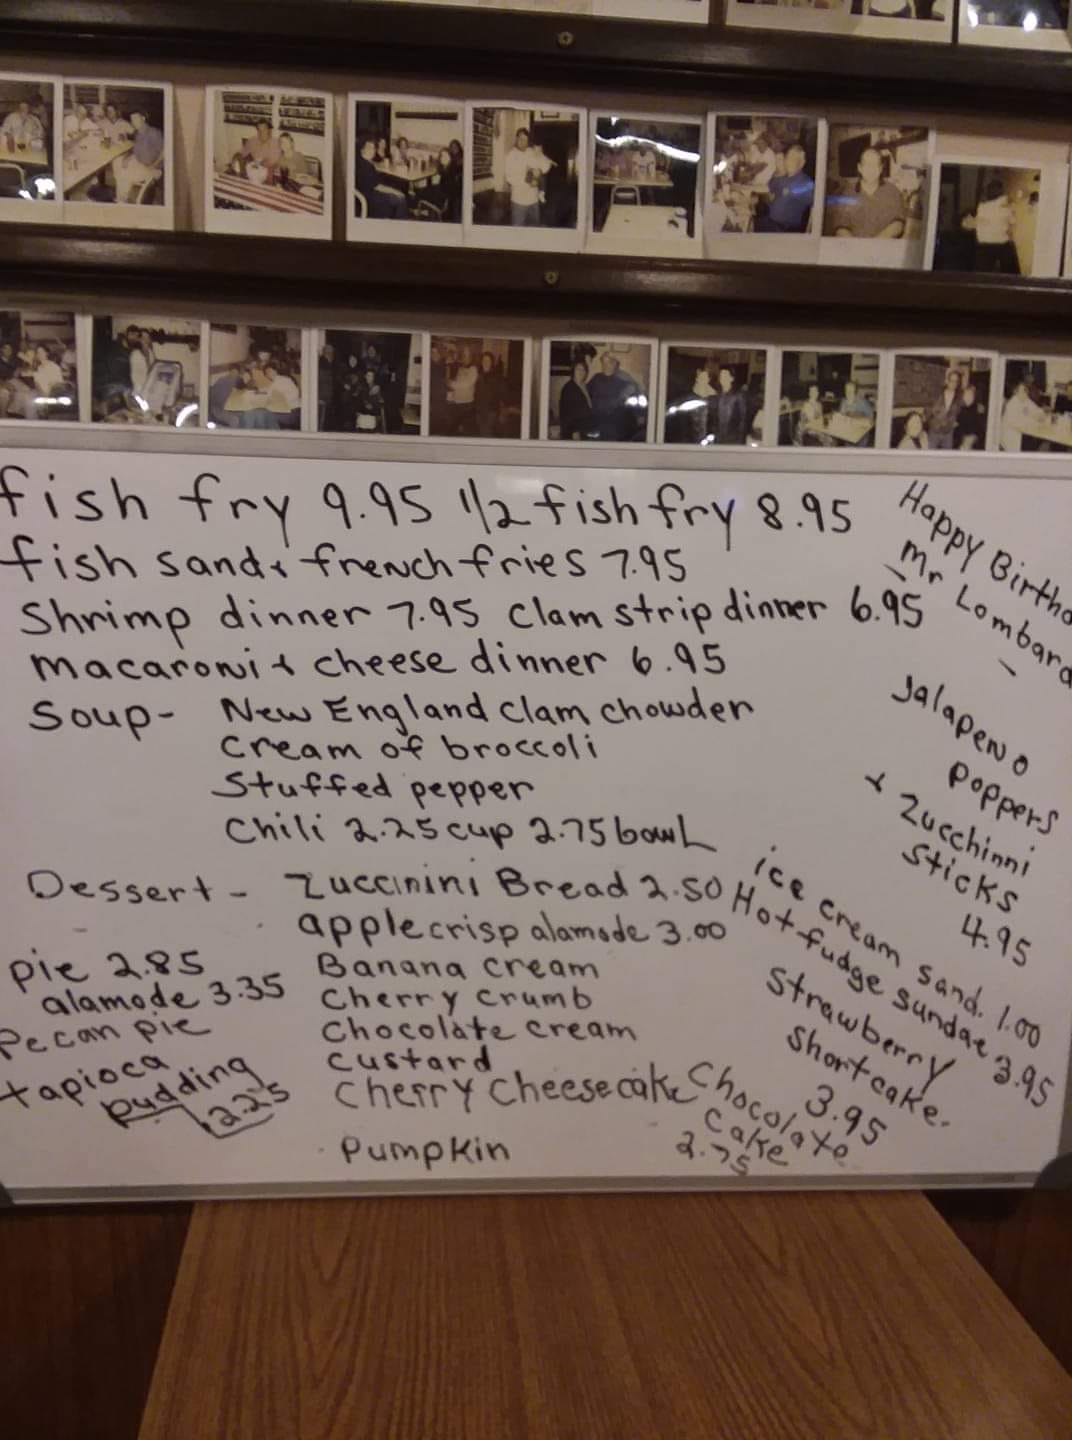 fish fry 9.95 1/2 fish fry 8.95
fish sand & french fries 7.95
Shrimp dinner 7.95 Clam strip dinner 6.95
macaroni & cheese dinner 6.95
Soup- New England Clam chowder
Cream of broccoli
Stuffed pepper
Chili 2.25 cup 2.75 bowl
Happy Birthd
Mr Lombard
Jalapeno
Poppers
& Zucchinni
Sticks
4.95
Dessert - Zuccinini Bread 2.50
apple crisp alamode 3.00
pie 2.85
alamode 3.35
Pecan pie
tapioca
pudding
2.25
Banana cream
Cherry crumb
Chocolate cream
custard
Cherry Cheesecake
Pumpkin
ice cream sand. 1.00
Hot fudge sundae 3.95
Strawberry
Shortcake.
3.95
Chocolate
cake
2.75